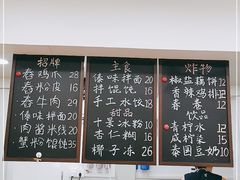 招牌
春鸡爪 28
春米皮 16
春牛肉 29
傣味拌面 20
肉酱米线 20
蟹粉馄饨 35
主食
傣味拌面 20
拌馄饨 18
手工水饺 18
甜品
十景冰粉 10
杏仁糊 10
椰子冻 26
炸物
椒盐藕饼 12
香辣鸡排 12
春卷 12
饮品
青柠水 12
咸柠七 15
泰国豆奶 10